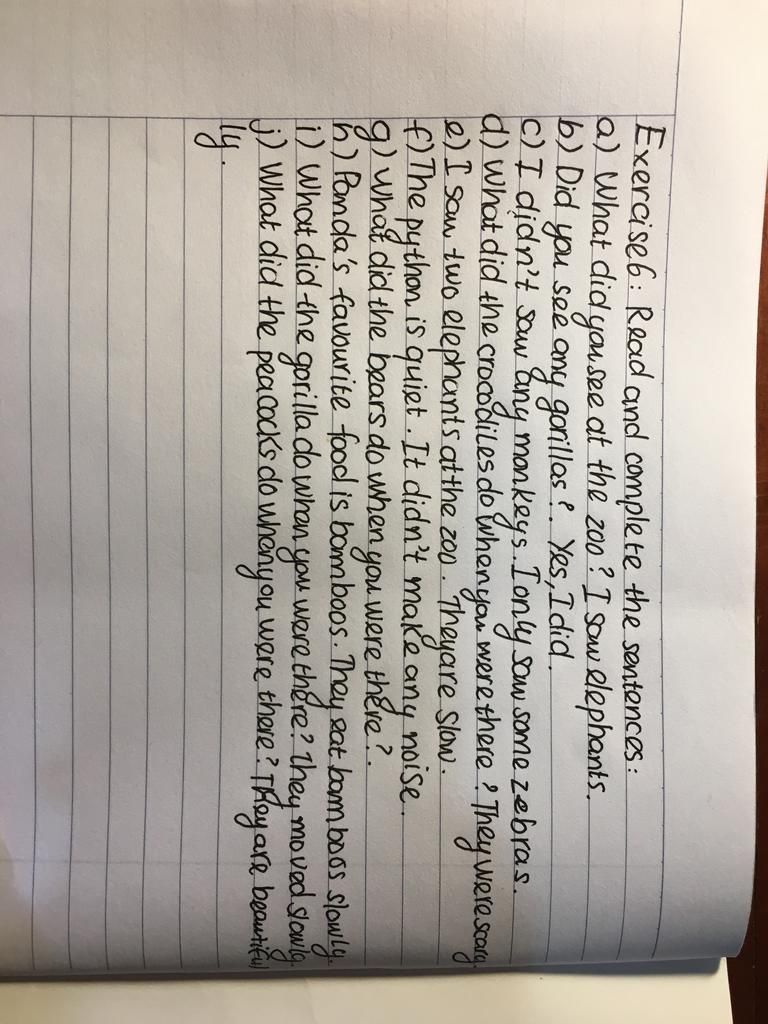 Exercise6: Read and complete the sentences:
a) What did you see at the zoo? I saw elephants.
b) Did you see any gorillas?. Yes, I did.
c) I didn't saw any monkeys. I only saw some zebras.
d) What did the crocodiles do when you were there? They were scary.
e) I saw two elephants at the zoo. They are slow.
f) The python is quiet. It didn't make any noise.
g) What did the bears do when you were there?.
h) Panda's favourite food is bomboos. They eat bomboos slowly.
i) What did the gorilla do when you were there? They moved slowly.
j) What did the peacocks do when you were there? They are beautiful
ly.